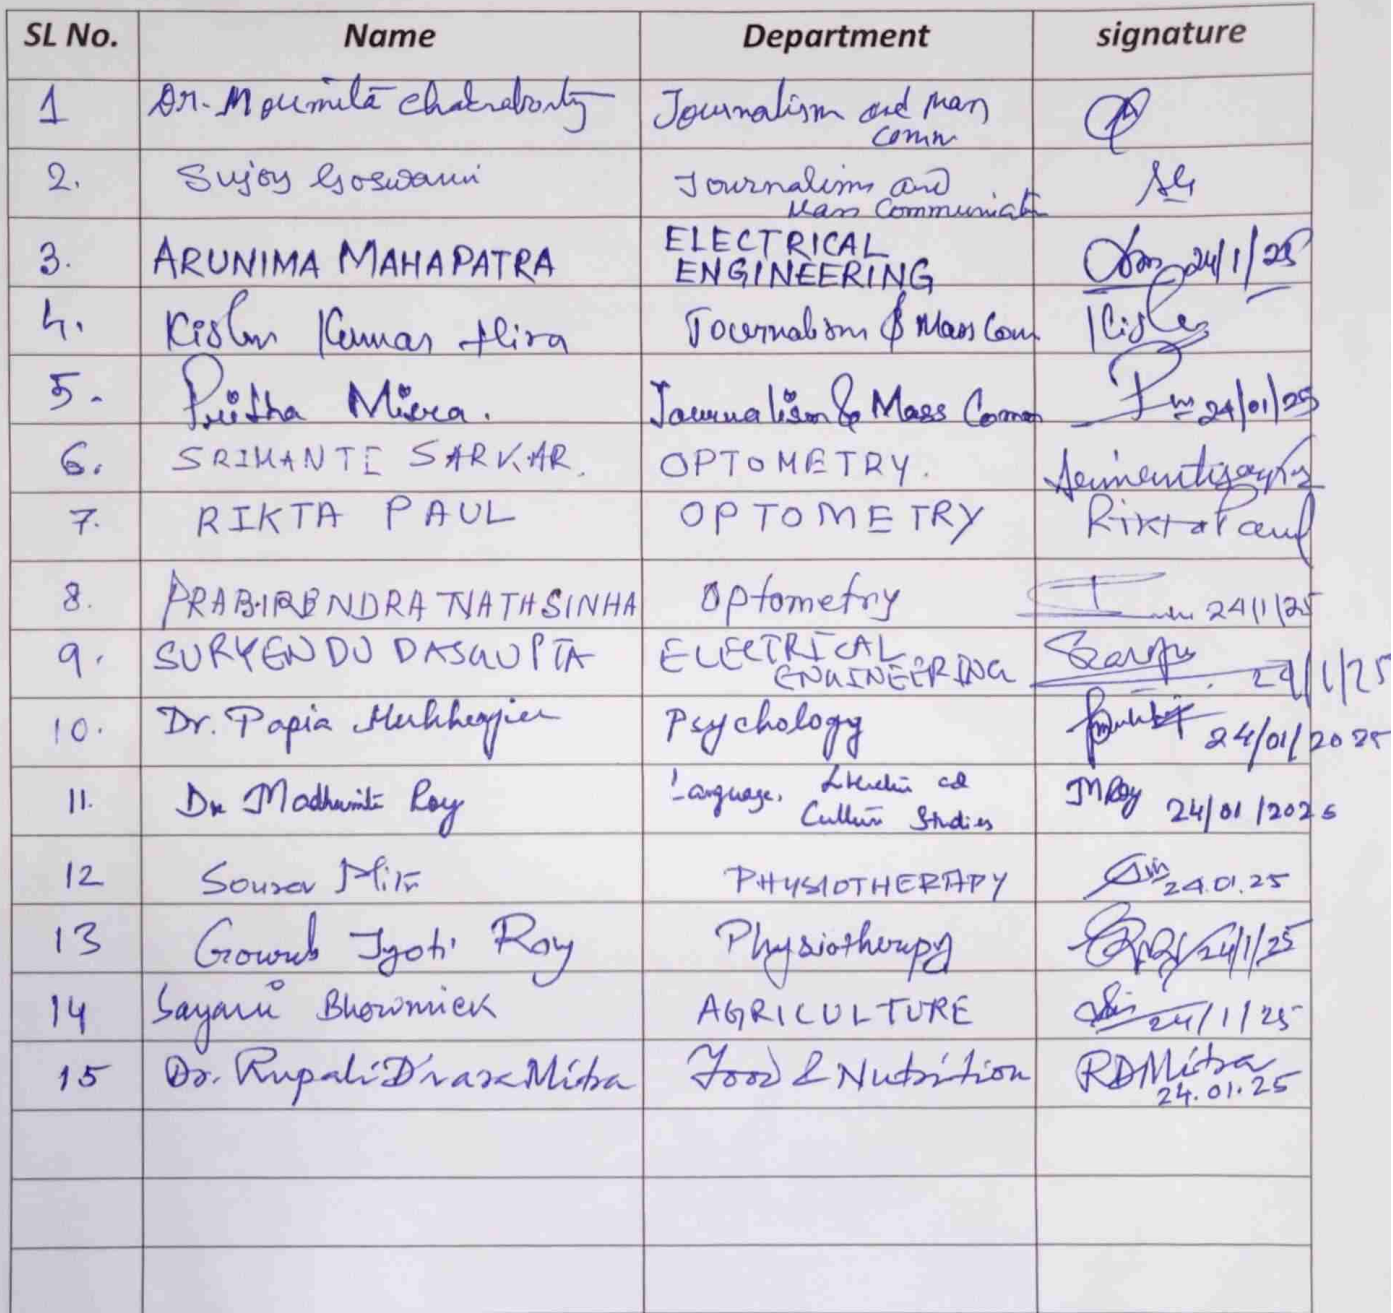 SL No. Name Department signature
1 Dr. Moumita Chakraborty Journalism and Mass
Comm
2. Sujoy Goswami Journalism and
Mass Communicatn
3. ARUNIMA MAHAPATRA ELECTRICAL
ENGINEERING 24/1/25
4. Kumar Journalism & Mass Com
5. Pritha Misra. Journalism & Mass Comm 24/01/25
6. SRIMANTI SARKAR. OPTOMETRY.
7. RIKTA PAUL OPTOMETRY Rikta Paul
8. PRABIRENDRA NATH SINHA Optometry 24/1/25
9. SURYENDU DASGUPTA ELECTRICAL
ENGINEERING 24/1/25
10. Dr. Papia Mukherjee Psychology 24/01/2025
11. Dr Madhumita Roy Language, Literature and
Culture Studies MRoy 24/01/2025
12 Sourav PHYSIOTHERAPY 24.01.25
13 Gourab Jyoti Roy Physiotherapy 24/1/25
14 Sayani Bhowmick AGRICULTURE 24/1/25
15 Dr. Rupali Mitra Food & Nutrition RDMitra
24.01.25